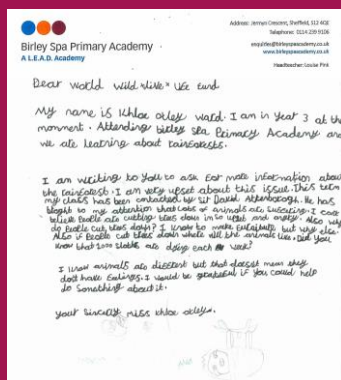 Address: Jermyn Crescent, Sheffield, S12 4QE
Telephone: 0114 239 9106
enquiries@birleyspaacademy.co.uk
www.birleyspaacademy.co.uk
Headteacher: Louise Pink
Birley Spa Primary Academy
A L.E.A.D. Academy
Dear world wild
My name is Khloe otley ward. I am in year 3 at the
moment. Attending birley spa Primary Academy and
we are learning about
I am writing to you to ask for more information about
the I am very upset about this issue. This term
my class has been contacted by sir David He has
to my attention that lots of animals are I
believe people are cutting trees down im so upset and angry. Also why
do people cut trees down? I know to make but why else.
Also if people cut trees down where will the animals live. Did you
know that 1000 sloths are dying each week?
I know animals are different but that doesnt mean they
dont have I would be grateful if you could help
do something about it.
your miss khloe otley.